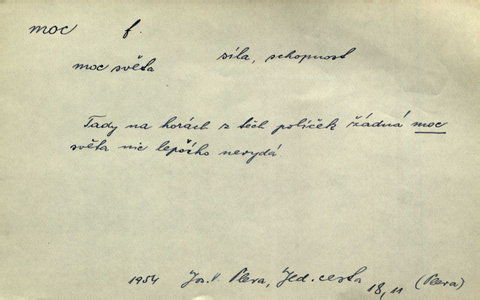 moc f.
síla, schopnost
moc světa
Tady na horách z těch políček žádná moc
světa nic lepšího nevydá
1954 Jos. V. Pleva, Jed. cesta 18, 11 (Pleva)